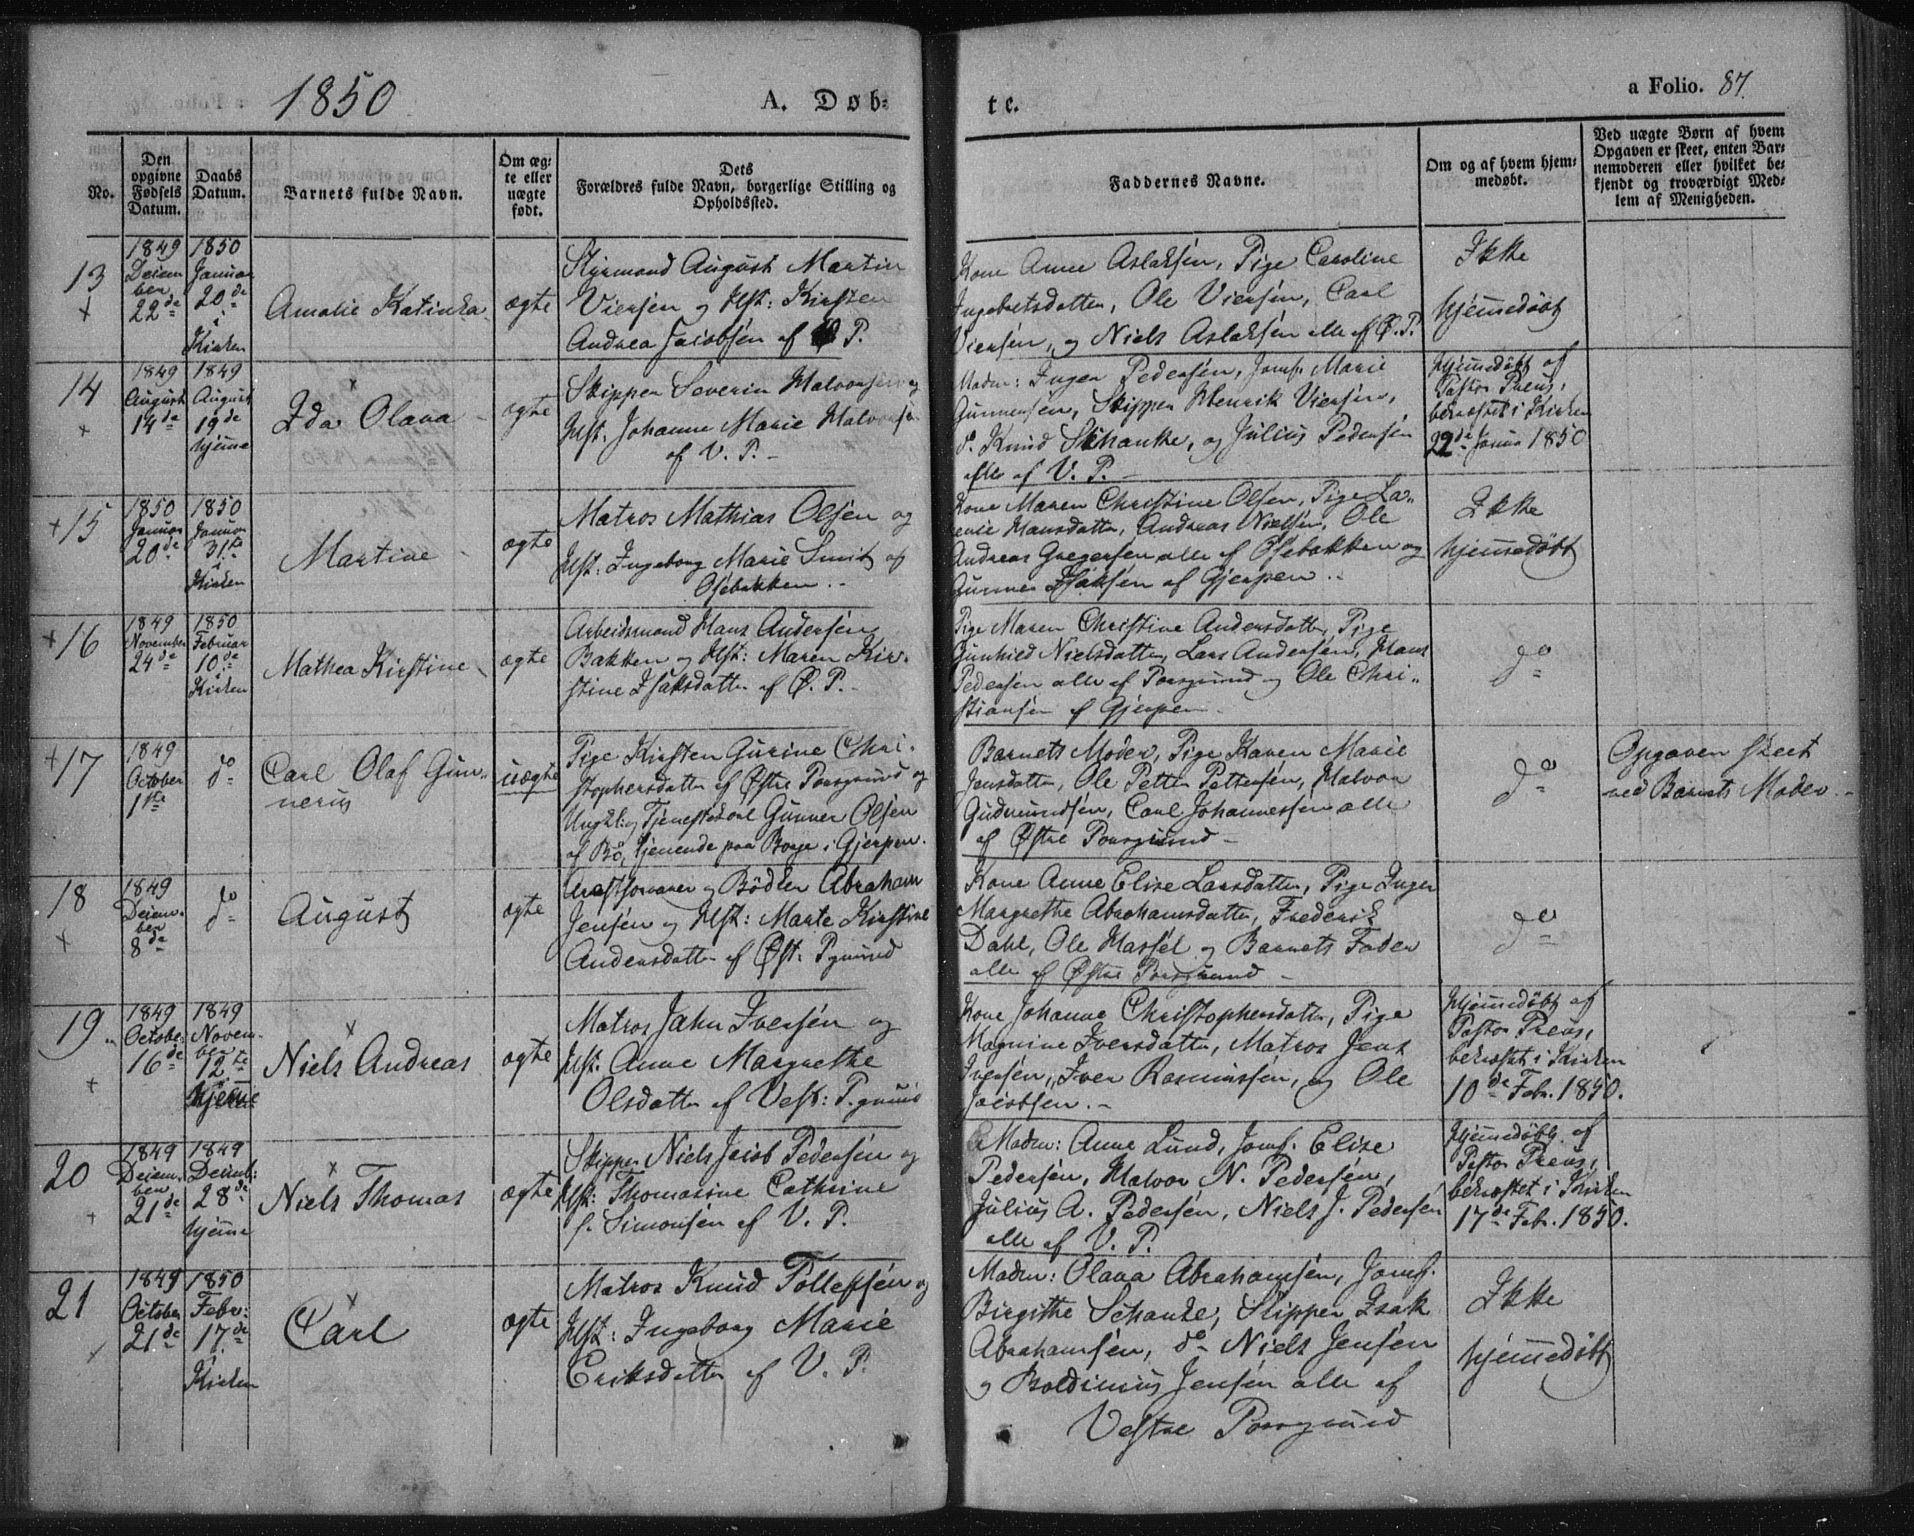 1850
A. Døb-
te.
a Folio. 87.
No.
Den
opgivne
Fødsels
Datum.
Daabs
Datum.
Barnets fulde Navn.
Om æg-
te eller
uægte
født.
Dets
Forældres fulde Navn, borgerlige Stilling og
Opholdssted.
Faddernes Navne.
Om og af hvem hjem-
medøbt.
Ved uægte Børn af hvem
Opgaven er skeet, enten Bar-
nemoderen eller hvilket be-
kjendt og troværdigt Med-
lem af Menigheden.
13
+
1849
Decem
ber
22de
1850
Januar
20de
i
Kirken
Amalie Katinka
ægte
Styrmand August Martin
Viersen og Hst: Kirsten
Andrea Jacobsen af Ø P.
Kone Anne Aslaksen, Pige Caroline
Ingebretsdatter, Ole Viersen, Carl
Viersen, og Niels Aslaksen alle af Ø. P.
Ikke
hjemmedøbt
14
+
1849
August
14de
1849
August
19de
hjemme
Ida Olava
ægte
Skipper Severin Halvorsen og
Hst. Johanne Marie Halvorsen
af V. P.
Madm: Inger Pedersen, Jomf. Marie
Gunnersen, Skipper Henrik Viersen,
do. Knud Schanke, og Julius Pedersen
alle af V. P.
Hjemmedøbt af
Pastor Preus,
bekræftet i Kirken
22de Januar 1850
+15
1850
Januar
20de
1850
Januar
31te
i
Kirken
Martine
ægte
Matros Mathias Olsen og
Hst: Ingeborg Marie Smit af
Osebakken.
Kone Maren Christine Olsen, Pige La-
renie Hansdatter, Andreas Nielsen, Ole
Andreas Gregersen alle af Osebakken og
Gunner Isaksen af Gjerpen.
Ikke
hjemmedøbt
+16
1849
November
24de
1850
Februar
10de
i
Kirken
Mathea Kirstine
ægte
Arbeidsmand Hans Andersen
Bakken og Hst: Maren Kir-
stine Isaksdatter af Ø. P.
Pige Maren Christine Andersdatter, Pige
Gunhild Nielsdatter, Lars Andersen, Hans
Pedersen alle af Porsgrund og Ole Chri-
stiansen af Gjerpen
do
+17
1849
October
1ste
do
Carl Olaf Gun-
nerius
uægte
Pige Kirsten Gurine Chri-
stophersdatter af Østre Porsgrund og
Ungkl. og Tjenestekarl Gunner Olsen
af Bø, tjenende paa Borge i Gjerpen.
Barnets Moder, Pige Karen Marie
Jensdatter, Ole Petter Pettersen, Halvor
Gudmundsen, Carl Johannessen alle
af Østre Porsgrund
do
Opgaven skeet
ved Barnets Moder.
18
+
1849
Decem-
ber
8de
do
August
ægte
Arrestforvarer og Bødker Abraham
Jensen og Hst: Marte Kirstine
Andersdatter af Øst: Pgrund
Kone Anne Elise Larsdatter, Pige Inger
Margrethe Abrahamsdatter, Frederik
Dahl, Ole Hassel og Barnets Fader
alle af Østre Porsgrund
do
19
+
1849
October
16de
1849
Novem-
ber
12te
hjemme
Niels Andreas
ægte
Matros Jahn Iversen og
Hst. Anne Margrethe
Olsdatter af Vest: P.grund
Kone Johanne Christophersdatter, Pige
Magnine Iversdatter, Matros Jens
Iversen, Iver Rasmussen, og Ole
Jacobsen.
Hjemmedøbt af
Pastor Preus,
bekræftet i Kirken
10de Febr. 1850.
20
+
1849
Decem-
ber
21de
1849
Decemb:
28de
hjemme
Niels Thomas
ægte
Skipper Niels Jacob Pedersen og
Hst: Thomasine Cathrine
f. Simonsen af V. P.
Madm: Anne Lund, Jomf. Elise
Pedersen, Halvor N. Pedersen,
Julius A. Pedersen, Niels J. Pedersen
alle af V. P.
Hjemmedøbt af
Pastor Preus,
bekræftet i Kirken
17de Febr. 1850.
21
1849
October
21de
1850
Febr:
17de
i
Kirken
Carl
ægte
Matros Knud Tollefsen og
Hst: Ingeborg Marie
Eriksdatter af V. P.
Madm: Olava Abrahamsen, Jomf.
Birgithe Schanke, Skipper Isak
Abrahamsen, do Niels Jensen
og Boldinius Jensen alle af
Vestre Porsgrund
Ikke
hjemmedøbt